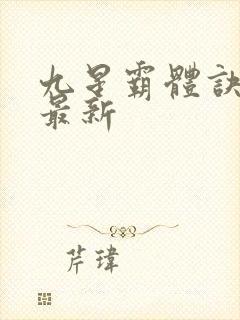 九星霸體訣
最新
芹瑋